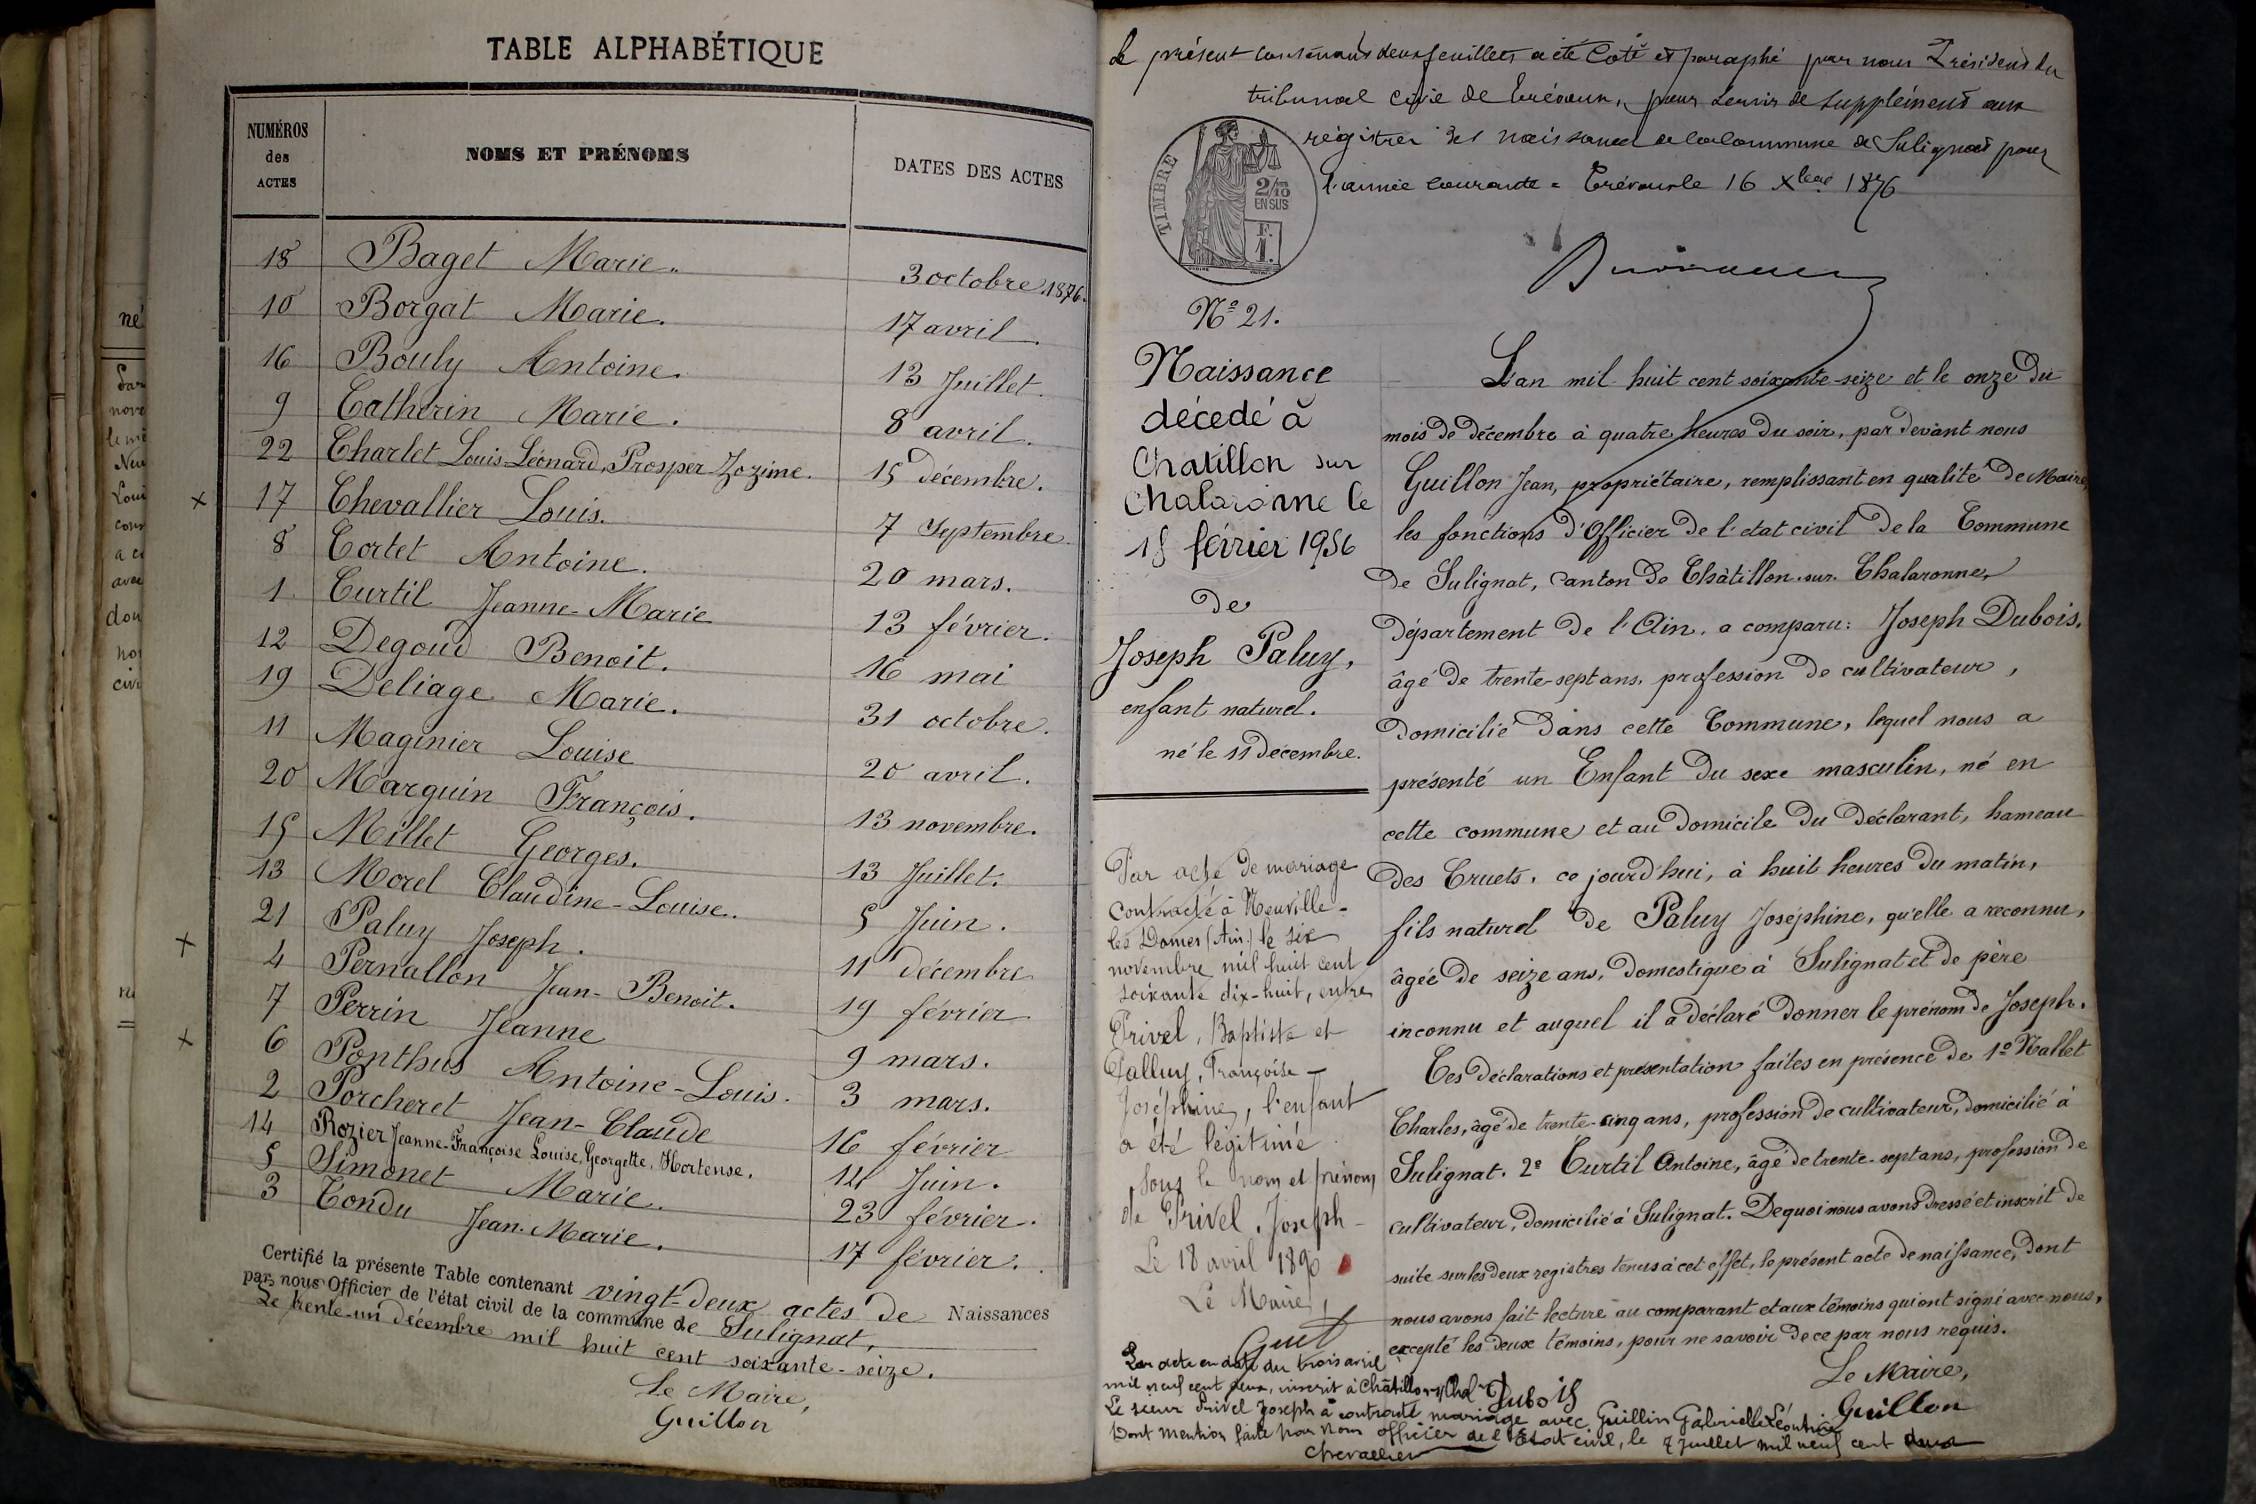 TABLE ALPHABÉTIQUE
NUMÉROS des ACTES
NOMS ET PRÉNOMS
DATES DES ACTES
18 Baget Marie. 3 octobre 1876.
10 Borgat Marie. 17 avril.
16 Bouly Antoine. 13 Juillet.
9 Catherin Marie. 8 avril.
22 Charlet Louis-Léonard, Prosper Zozime. 15 décembre.
x 17 Chevallier Louis. 7 Septembre.
8 Cortet Antoine. 20 mars.
1 Curtil Jeanne-Marie 13 février.
12 Degoud Benoit. 16 mai
19 Deliage Marie. 31 octobre.
11 Maginier Louise 20 avril.
20 Marguin François. 13 novembre.
15 Millet Georges. 13 Juillet.
13 Morel Claudine-Louise. 5 Juin.
x 21 Paluy Joseph. 11 décembre
4 Pernallon Jean-Benoit. 19 février
x 7 Perrin Jeanne 9 mars.
6 Ponthus Antoine-Louis. 3 mars.
2 Porcheret Jean-Claude 16 février
14 Rozier Jeanne-Françoise Louise, Georgette, Hortense. 14 Juin.
5 Simonet Marie. 23 février.
3 Tondu Jean-Marie. 17 février.
Certifié la présente Table contenant vingt-deux actes de Naissances
par nous Officier de l'état civil de la commune de Sulignat,
Le trente-un décembre mil huit cent soixante-seize.
Le Maire,
Guillon
Le présent contenant deux feuillets a été Coté et paraphé par nous Président du
tribunal civil de Trévoux, pour servir de supplément aux
registres des naissances de la Commune de Sulignat pour
l'année courante = Trévoux le 16 Xbre 1876
TIMBRE
2/10
EN SUS
F.
1.
Nº 21.
Naissance
décedé à
Chatillon sur
Chalaronne le
15 février 1956
de
Joseph Paluy,
enfant naturel.
né le 11 décembre.
Par acte de mariage
contracté à Neuville-
les Dames (Ain) le six
novembre mil huit cent
soixante dix-huit, entre
Privel, Baptiste et
Palluy, Françoise-
Joséphine, l'enfant
a été légitimé
sous le nom et prénom
de Privel, Joseph-
Le 18 avril 1890
Le Maire,
L'an mil huit cent soixante-seize et le onze du
mois de décembre à quatre heures du soir, par devant nous
Guillon Jean, propriétaire, remplissant en qualité de Maire,
les fonctions d'Officier de l'etat civil de la Commune
de Sulignat, canton de Châtillon-sur-Chalaronne,
département de l'Ain. a comparu: Joseph Dubois.
âgé de trente-sept ans, profession de cultivateur,
domicilié dans cette Commune, lequel nous a
présenté un Enfant du sexe masculin, né en
cette commune et au domicile du déclarant, hameau
des Cruets, ce jourd'hui, à huit heures du matin,
fils naturel de Paluy Joséphine, qu'elle a reconnu,
âgée de seize ans, domestique à Sulignat et de père
inconnu et auquel il a déclaré donner le prénom de Joseph.
Ces déclarations et présentation faites en présence de 1º Nallet
Charles, âgé de trente-cinq ans, profession de cultivateur, domicilié à
Sulignat. 2º Curtil Antoine, âgé de trente-sept ans, profession de
cultivateur, domicilié à Sulignat. De quoi nous avons dressé et inscrit de
suite sur les deux registres tenus à cet effet, le présent acte de naissance, dont
nous avons fait lecture au comparant et aux témoins qui ont signé avec nous,
excepté les deux témoins, pour ne savoir de ce par nous requis.
Le Maire,
Dubois
Guillon
Par acte en date du trois avril
mil neuf cent deux, inscrit à Châtillon s/ Chal
Le sieur Privel Joseph a contracté mariage avec Guillin Gabrielle Léontine
Dont mention faite par Nous officier de l'Etat civil, le 7 juillet mil neuf cent deux
Chevallier